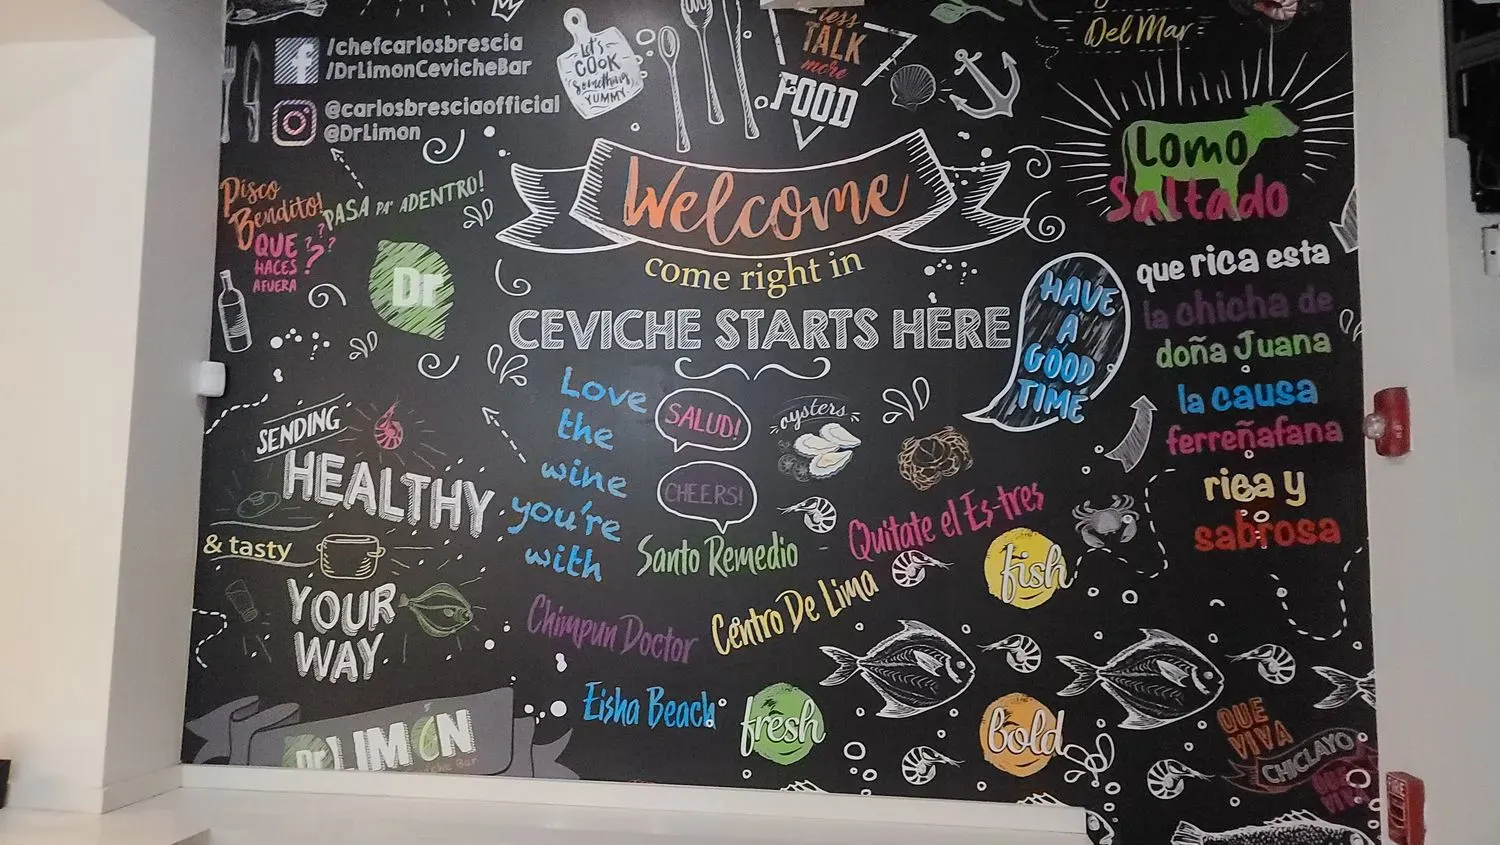 /chefcarlosbrescia
/DrLimonCevicheBar
@carlosbresciaofficial
@DrLimon
Let's
COOK
Something
YUMMY
less
TALK
more
FOOD
Del Mar
Lomo
Saltado
Pisco
Bendito!
PASA PA' ADENTRO!
QUE
HACES
AFUERA
?
Dr
Welcome
come right in
CEVICHE STARTS HERE
HAVE
A
GOOD
TIME
que rica esta
la chicha de
doña Juana
la causa
ferreñafana
rica y
sabrosa
SENDING
HEALTHY
& tasty
YOUR
WAY
Love
the
wine
you're
with
SALUD!
CHEERS!
oysters
Santo Remedio
Quitate el Es-tres
Chimpun Doctor
Centro De Lima
Eisha Beach
fish
fresh
bold
Dr LIMÓN
che Bar
QUE
VIVA
CHICLAYO
QUE
VIVA
FIRE